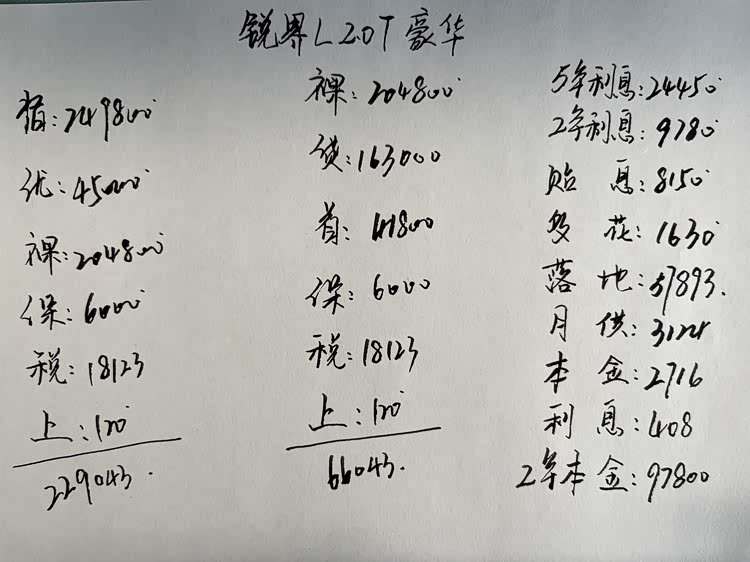 锐界L 2.0T 豪华
指:249800
优:45000
裸:204800
保:6000
税:18123
上:120
229043.
裸:204800
贷:163000
首:41800
保:6000
税:18123
上:120
66043.
5年利息:24450
2年利息:9780
贴息:8150
多花:1630
落地:57893.
月供:3124
本金:2716
利息:408
2年本金:97800